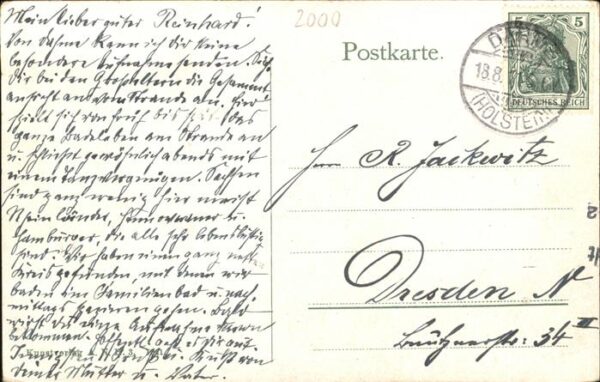 Mein lieber guter Reinhard!
Von Dahme kann ich dir keine
besondere Aufnahme senden. Sieh
Dir bei den Großeltern die Gesammt
ansicht am Strande an. Hier
spielt sich von früh bis spät das
ganze Badeleben am Strande an
u. schließt gewöhnlich abends mit
einem Tanzvergnügen. Sachsen
sind ganz wenig hier meist
Rheinländer, Hannoveraner u.
Hamburger, die alle sehr lebenslustig
sind. Wir haben einen ganz netten
Kreis gefunden, mit denen wir
baden im Familienbad u. nach-
mittags spazieren gehen. Bald
wirst du eine Aufnahme davon
bekommen.
Kuß von
deine Mutter u. Vater.
2000
Postkarte.
5 5
DEUTSCHES REICH
DAHME
18.8.
(HOLSTEIN)
Herrn R. Jackwitz
Dresden N
Bautznerstr. 34 III